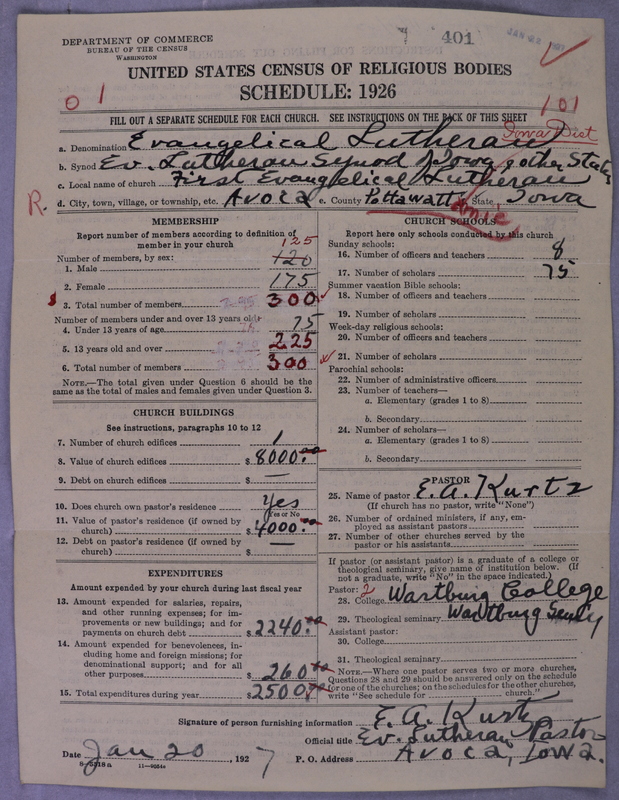 DEPARTMENT OF COMMERCE
BUREAU OF THE CENSUS
WASHINGTON
401
UNITED STATES CENSUS OF RELIGIOUS BODIES
SCHEDULE: 1926
0 1
101
FILL OUT A SEPARATE SCHEDULE FOR EACH CHURCH. SEE INSTRUCTIONS ON THE BACK OF THIS SHEET
Iowa Dist
a. Denomination Evangelical Lutheran
b. Synod Ev. Lutheran Synod Iowa & other States
c. Local name of church First Evangelical Lutheran
R. d. City, town, village, or township, etc. Avoca e. County Pottawattamie State Iowa
MEMBERSHIP
Report number of members according to definition of member in your church
Number of members, by sex:
125
1. Male 120
2. Female 175
3. Total number of members 300
Number of members under and over 13 years old:
4. Under 13 years of age 75
5. 13 years old and over 225
6. Total number of members 300
NOTE.—The total given under Question 6 should be the
same as the total of males and females given under Question 3.
CHURCH BUILDINGS
See instructions, paragraphs 10 to 12
7. Number of church edifices 1
8. Value of church edifices $8000.00
9. Debt on church edifices $ —
10. Does church own pastor's residence Yes
Yes or No
11. Value of pastor's residence (if owned by
church) $4000.00
12. Debt on pastor's residence (if owned by
church) $ —
EXPENDITURES
Amount expended by your church during last fiscal year
13. Amount expended for salaries, repairs,
and other running expenses; for im-
provements or new buildings; and for
payments on church debt $2240.00
14. Amount expended for benevolences, in-
cluding home and foreign missions; for
denominational support; and for all
other purposes $260.00
15. Total expenditures during year $2500.00
CHURCH SCHOOLS
Report here only schools conducted by this church
Sunday schools:
16. Number of officers and teachers 8
17. Number of scholars 75
Summer vacation Bible schools:
18. Number of officers and teachers
19. Number of scholars
Week-day religious schools:
20. Number of officers and teachers
21. Number of scholars
Parochial schools:
22. Number of administrative officers
23. Number of teachers—
a. Elementary (grades 1 to 8)
b. Secondary
24. Number of scholars—
a. Elementary (grades 1 to 8)
b. Secondary
PASTOR
25. Name of pastor E. A. Kurtz
(If church has no pastor, write "None")
26. Number of ordained ministers, if any, em-
ployed as assistant pastors
27. Number of other churches served by the
pastor or his assistants
If pastor (or assistant pastor) is a graduate of a college or
theological seminary, give name of institution below. (If
not a graduate, write "No" in the space indicated.)
Pastor: 2
28. College Wartburg College
29. Theological seminary Wartburg
Assistant pastor:
30. College
31. Theological seminary
NOTE.—Where one pastor serves two or more churches,
Questions 28 and 29 should be answered only on the schedule
for one of the churches; on the schedules for the other churches,
write "See schedule for church."
Signature of person furnishing information E. A. Kurtz
Official title Ev. Lutheran Pastor
Date Jan 20, 1927 P. O. Address Avoca, Iowa.